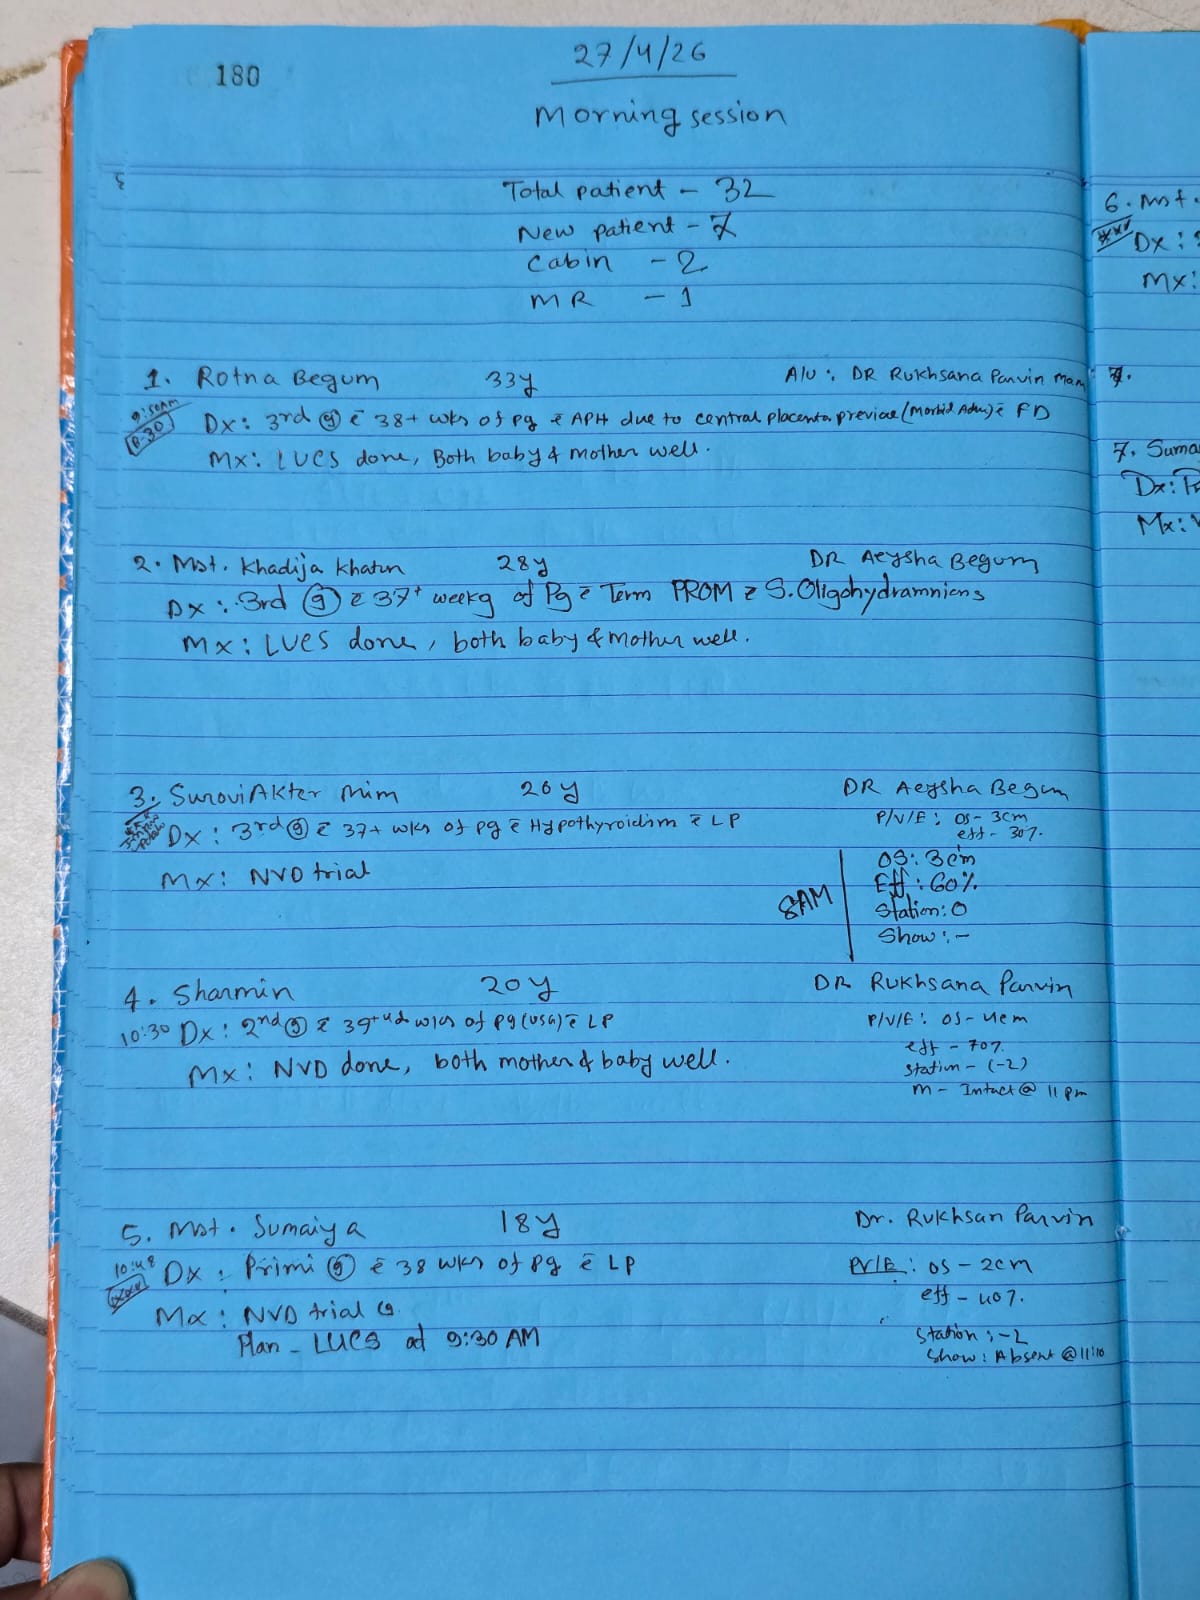 180
27/4/26
Morning session
Total patient - 32
New patient - 7
Cabin - 2
MR - 1
1. Rotna Begum 33y A/U: DR Rukhsana Parvin mam
9:50AM
Dx: 3rd (g) c̄ 38+ wks of pg c̄ APH due to central placenta previae (Morbid Adh) c̄ FD
Mx: LUCS done, Both baby & Mother well.
2. Mst. Khadija Khatun 28y DR Aeysha Begum
Dx: 3rd (g) c̄ 37+ weekg of Pg c̄ Term PROM c̄ S. Oligohydramnions
Mx: LUCS done, both baby & mother well.
3. Surovi Akter Mim 26y DR Aeysha Begum
Dx: 3rd (g) c̄ 37+ wks of pg c̄ Hypothyroidism c̄ LP
P/V/E: os- 3cm
eff- 30%.
Mx: NVD trial
8AM
OS: 3cm
Eff: 60%
Station: 0
Show: -
4. Sharmin 20y DR Rukhsana Parvin
10:30 Dx: 2nd (g) c̄ 39+4d wks of pg (USG) c̄ LP
P/V/E: OS-4cm
eff - 70%
Station - (-2)
M - Intact @ 11 pm
Mx: NVD done, both mother & baby well.
5. Mst. Sumaiya 18y Dr. Rukhsan Parvin
10:48 Dx: Primi (g) c̄ 38 wks of pg c̄ LP
PV/E: OS - 2cm
eff - 40%.
Station: -2
Show: Absent @ 11:10
Mx: NVD trial
Plan - LUCS at 9:30 AM
6. Mst.
Dx:
Mx:
7. Suma
Dx: Pr
Mx: